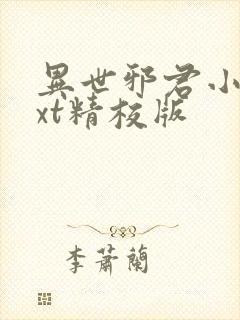 異世邪君小
xt精校版
李蕭蘭